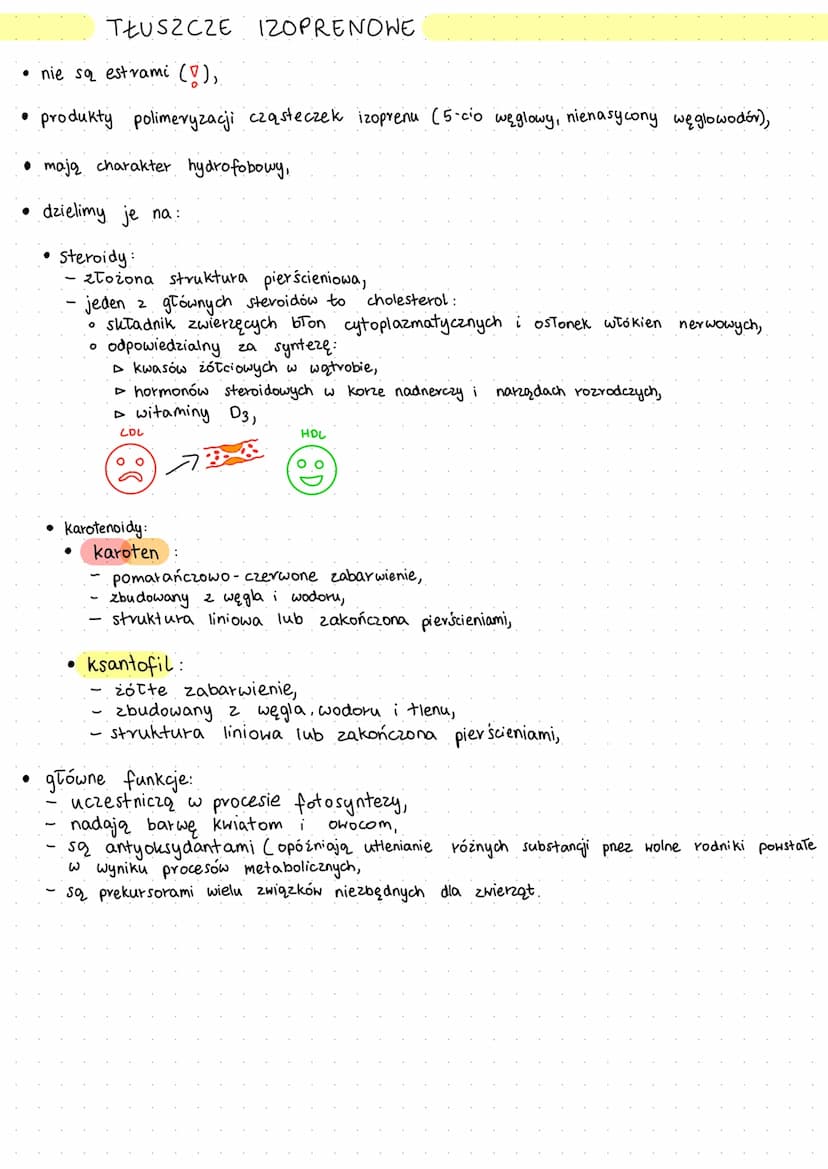 TŁUSZCZE IZOPRENOWE
• nie są estrami (!),
• produkty polimeryzacji cząsteczek izoprenu (5-cio węglowy, nienasycony węglowodór),
• mają charakter hydrofobowy,
• dzielimy je na:
• steroidy:
- złożona struktura pierścieniowa,
- jeden z głównych steroidów to cholesterol:
∘ składnik zwierzęcych błon cytoplazmatycznych i osłonek włókien nerwowych,
∘ odpowiedzialny za syntezę:
▷ kwasów żółciowych w wątrobie,
▷ hormonów steroidowych w korze nadnerczy i narządach rozrodczych,
▷ witaminy D3,
LDL HDL
• karotenoidy:
• karoten :
- pomarańczowo-czerwone zabarwienie,
- zbudowany z węgla i wodoru,
- struktura liniowa lub zakończona pierścieniami,
• ksantofil :
- żółte zabarwienie,
- zbudowany z węgla, wodoru i tlenu,
- struktura liniowa lub zakończona pierścieniami,
• główne funkcje:
- uczestniczą w procesie fotosyntezy,
- nadają barwę kwiatom i owocom,
- są antyoksydantami (opóźniają utlenianie różnych substancji przez wolne rodniki powstałe
w wyniku procesów metabolicznych,
- są prekursorami wielu związków niezbędnych dla zwierząt.